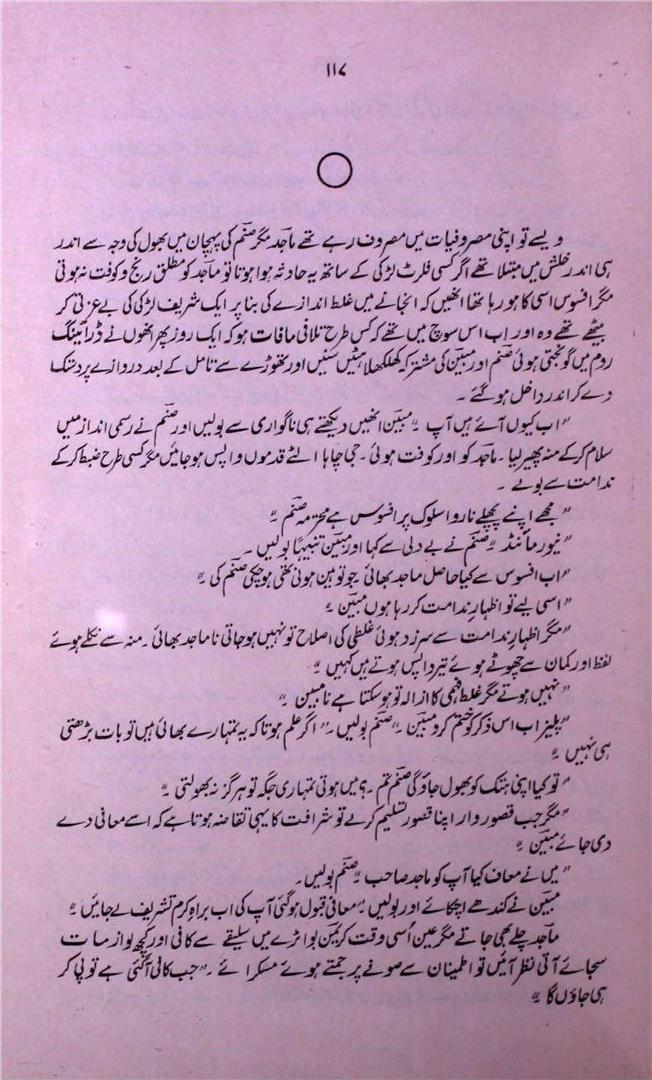 ۱۱۷
ویسے تو اپنی مصروفیات میں مصروف رہے تھے ماجد مگر صنم کی پہچان میں بھول کی وجہ سے اندر
ہی اندر خلش میں مبتلا تھے اگر کسی فلرٹ لڑکی کے ساتھ یہ حادثہ ہوا ہوتا تو ماجد کو مطلق رنج و کوفت نہ ہوتی
مگر افسوس اسی کا ہو رہا تھا انھیں کہ انجانے میں غلط اندازے کی بنا پر ایک شریف لڑکی کی بے عزتی کر
بیٹھے تھے وہ اور اب اس سوچ میں تھے کہ کس طرح تلافی مافات ہو کہ ایک روز پھر انھوں نے ڈرائینگ
روم میں گونجتی ہوئی صنم اور مبین کی مشترکہ کھلکھلاہٹیں سنیں اور تھوڑے سے تامل کے بعد دروازے پر دستک
دے کر اندر داخل ہو گئے ۔
"اب کیوں آئے ہیں آپ ۔" مبین انھیں دیکھتے ہی ناگواری سے بولیں اور صنم نے رسمی انداز میں
سلام کر کے منہ پھیر لیا ۔ ماجد کو اور کوفت ہوئی ۔ جی چاہا الٹے قدموں واپس ہو جائیں مگر کسی طرح ضبط کر کے
ندامت سے بولے ۔
"مجھے اپنے پچھلے ناروا سلوک پر افسوس ہے محترمہ صنم ۔"
"نیور مائنڈ ۔" صنم نے بے دلی سے کہا اور مبین تنبیہاً بولیں ۔
"اب افسوس سے کیا حاصل ماجد بھائی ۔ جو توہین ہونی تھی ہو چکی صنم کی ۔"
"اسی لیے تو اظہارِ ندامت کر رہا ہوں مبین ۔"
"مگر اظہارِ ندامت سے سرزد ہوئی غلطی کی اصلاح تو نہیں ہو جاتی نا ماجد بھائی ۔ منہ سے نکلے ہوئے
لفظ اور کمان سے چھوٹے ہوئے تیر واپس ہوتے ہیں کہیں ۔"
"نہیں ہوتے مگر غلط فہمی کا ازالہ تو ہو سکتا ہے نا مبین ۔"
"پلیز اب اس ذکر کو ختم کرو مبین ۔" صنم بولیں ۔" اگر علم ہوتا کہ یہ تمہارے بھائی ہیں تو بات بڑھتی
ہی نہیں ۔"
"تو کیا اپنی ہتک کو بھول جاؤ گی صنم تم ۔؟ میں ہوتی تمہاری جگہ تو ہرگز نہ بھولتی ۔"
"مگر جب قصور وار اپنا قصور تسلیم کر لے تو شرافت کا یہی تقاضہ ہوتا ہے کہ اسے معافی دے
دی جائے مبین ۔"
"میں نے معاف کیا آپ کو ماجد صاحب ۔" صنم بولیں ۔
مبین نے کندھے اچکائے اور بولیں "معافی قبول ہو گئی آپ کی اب براہِ کرم تشریف لے جائیں ۔"
ماجد چلے بھی جاتے مگر عین اُسی وقت کریمن بوا ٹرے میں سلیقے سے کافی اور کچھ لوازمات
سجائے آتی نظر آئیں تو اطمینان سے صوفے پر جمتے ہوئے مسکرائے ۔" جب کافی آ گئی ہے تو پی کر
ہی جاؤں گا ۔"